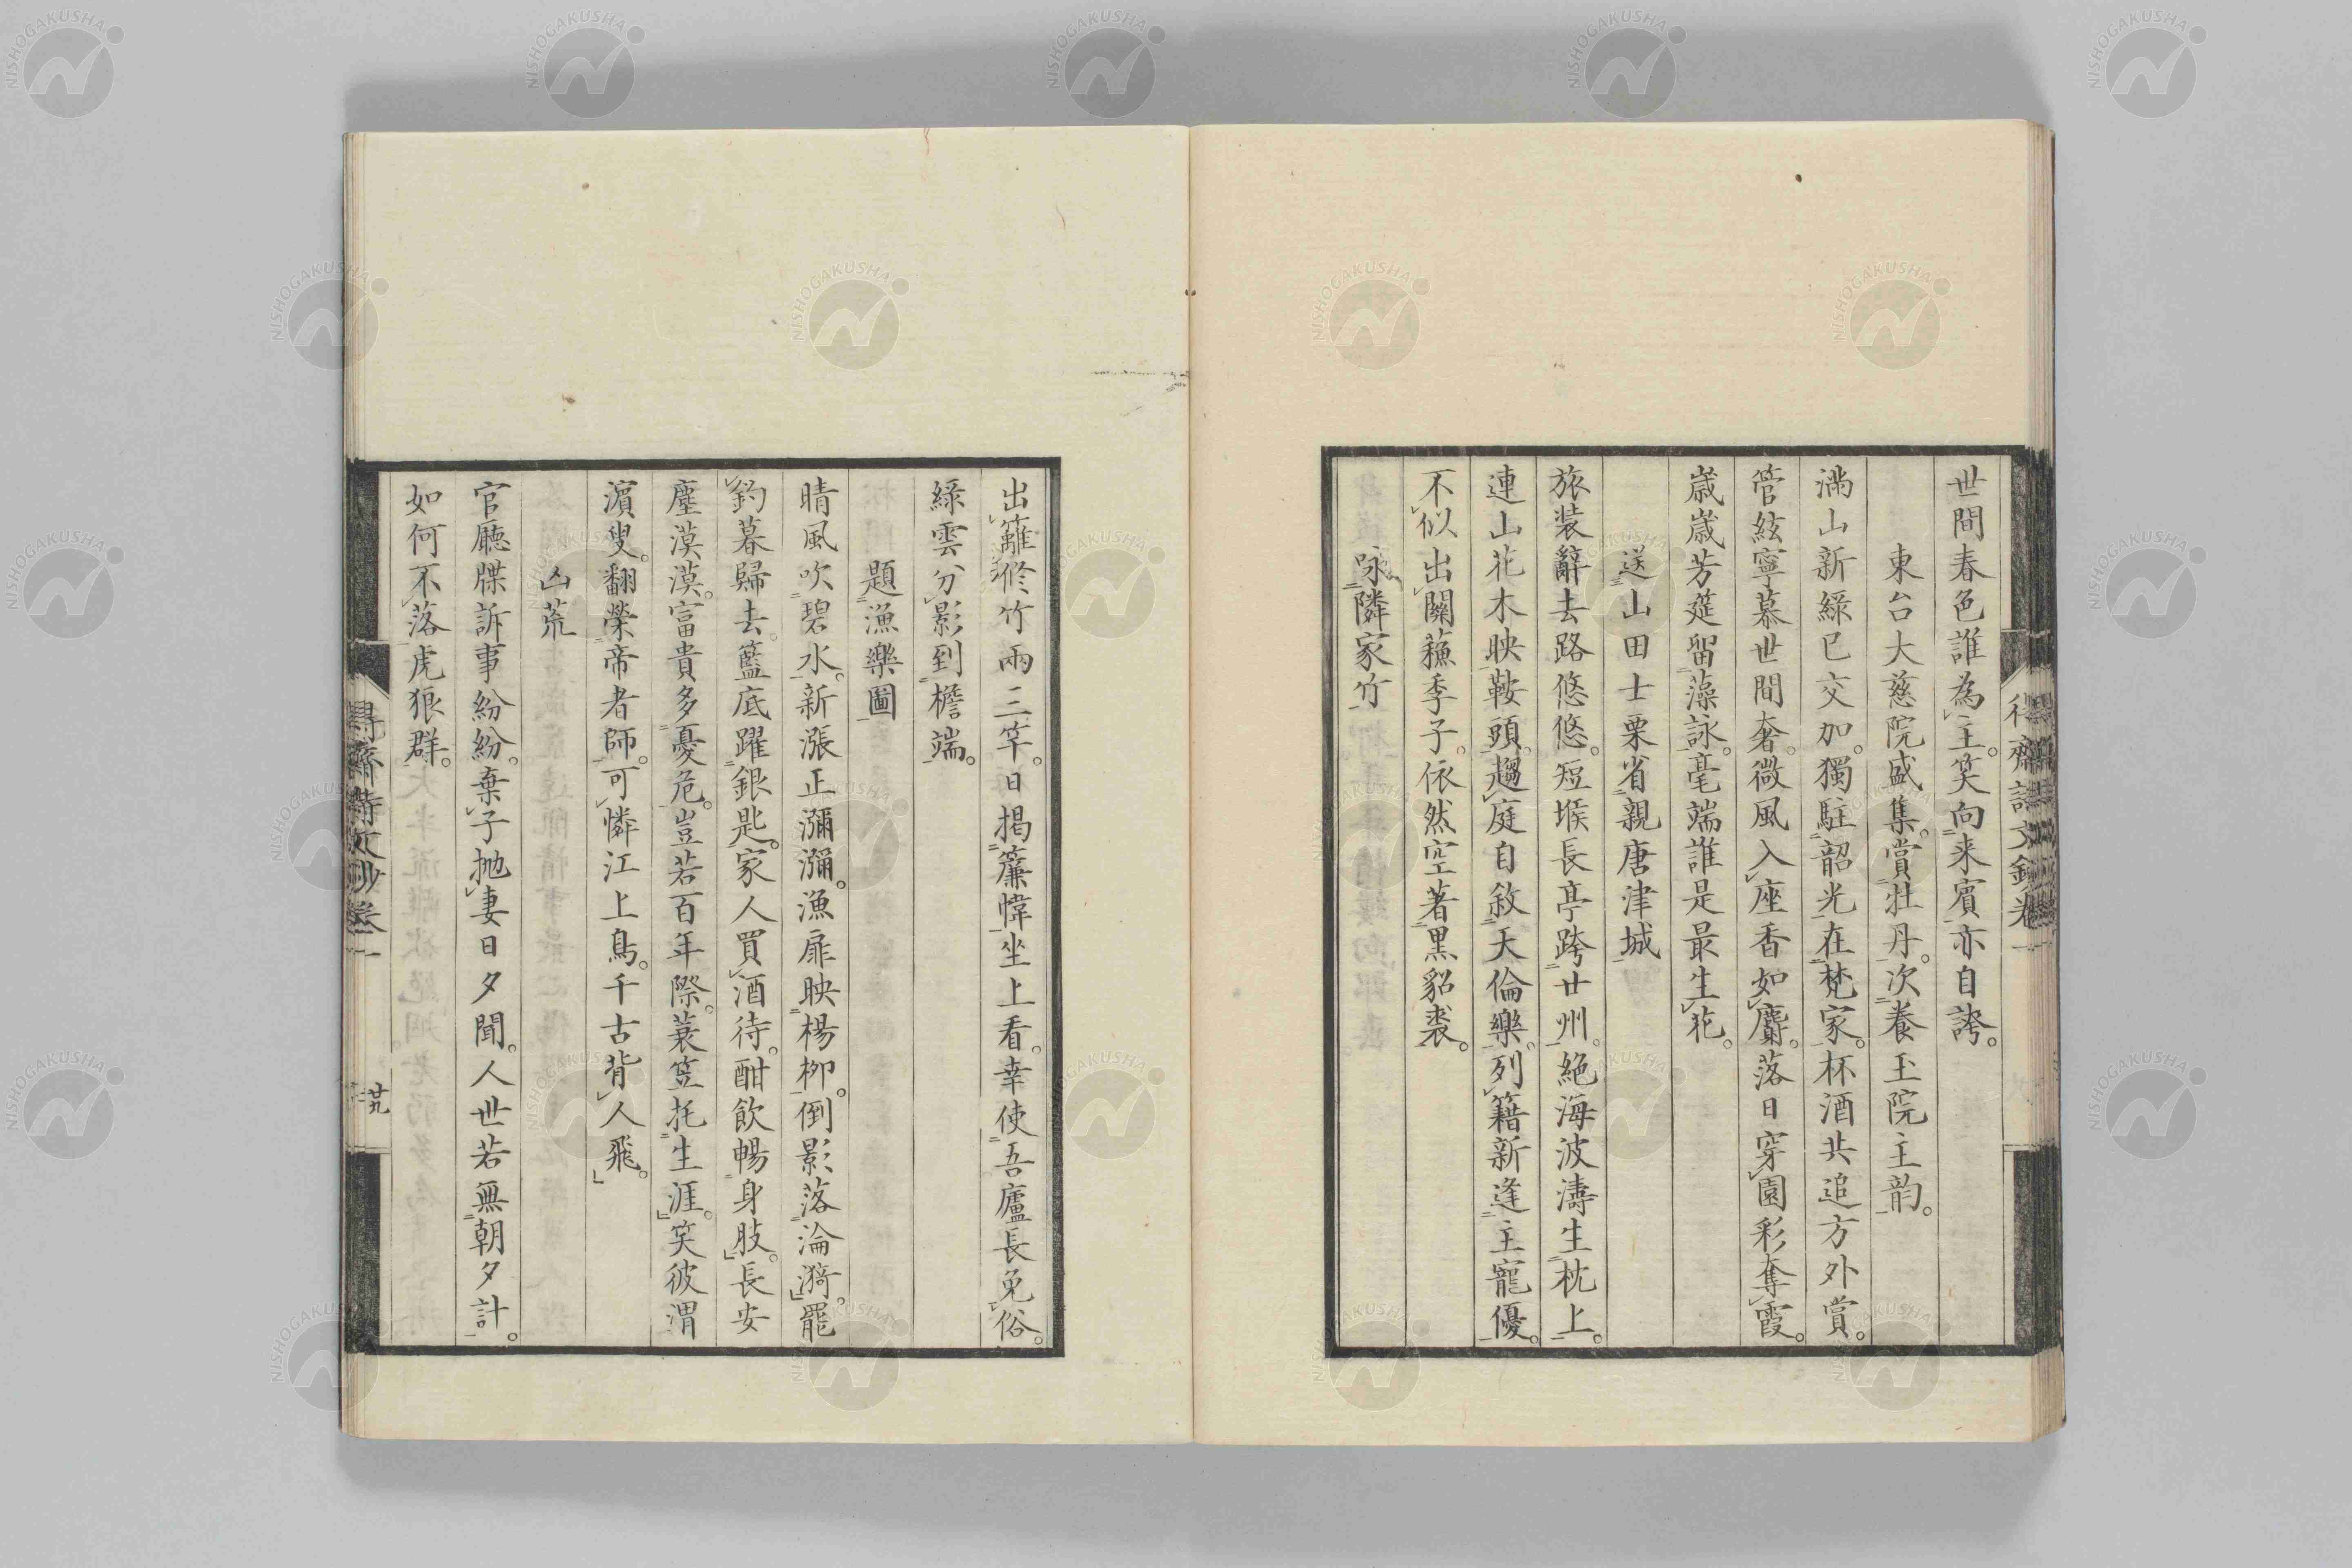 世間春色誰為主。笑向来賓亦自誇。
東台大慈院盛集。賞牡丹。次養玉院主韵。
滿山新綠已交加。獨駐韶光在梵家。杯酒共追方外賞。
管絃寧慕世間奢。微風入座香如麝。落日穿園彩奪霞。
歳歳芳筵留藻詠。毫端誰是最生花。
送山田士栗省親唐津城
旅装辭去路悠悠。短堠長亭跨廿州。絶海波濤生枕上。
連山花木映鞍頭。趨庭自敘天倫樂。列籍新逢主寵優。
不似出關蘓季子。依然空著黒貂裘。
咏隣家竹
出籬脩竹兩三竿。日掲簾幃坐上看。幸使吾廬長免俗。
緑雲分影到檐端。
題漁樂圖
晴風吹碧水。新漲正瀰瀰。漁扉映楊柳。倒影落淪漪。罷
釣暮歸去。籃底躍銀匙。家人買酒待。酣飲暢身肢。長安
塵漠漠。富貴多憂危。豈若百年際。蓑笠托生涯。笑彼渭
濵叟。翻榮帝者師。可憐江上鳥。千古背人飛。
凶荒
官廳牒訴事紛紛。棄子抛妻日夕聞。人世若無朝夕計。
如何不落虎狼群。
齋詩文鈔卷一
廿九
NISHOGAKUSHA